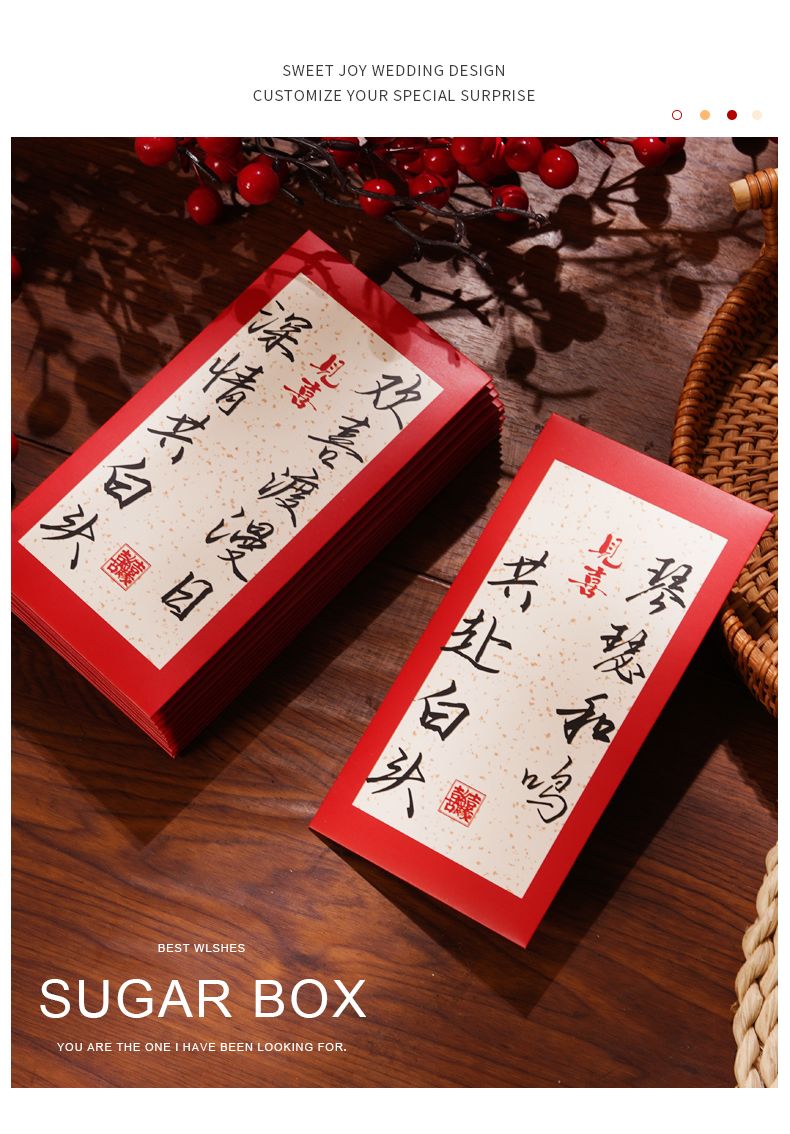 SWEET JOY WEDDING DESIGN
CUSTOMIZE YOUR SPECIAL SURPRISE
欢喜渡漫日
见喜
深情共白头
琴瑟和鸣
见喜
共赴白头
BEST WLSHES
SUGAR BOX
YOU ARE THE ONE I HAVE BEEN LOOKING FOR.